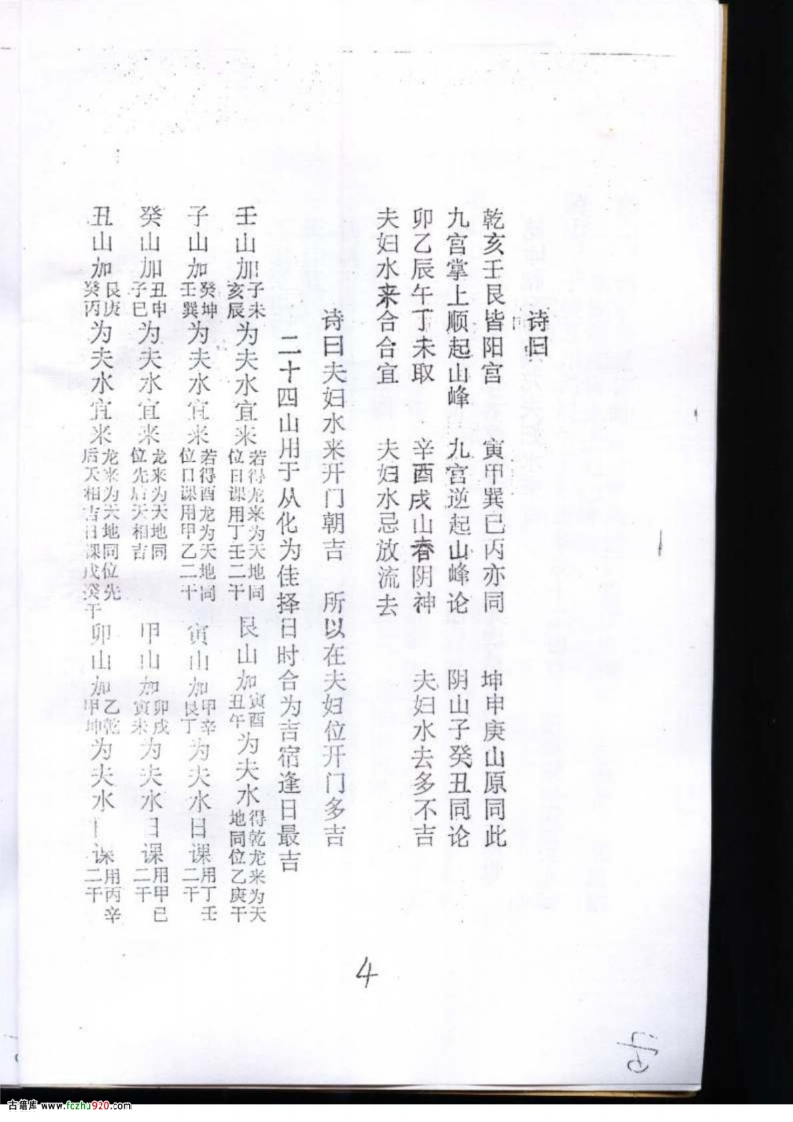 诗曰
乾亥壬艮皆阳宫　寅甲巽巳丙亦同　坤申庚山原同此
九宫掌上顺起山峰　九宫逆起山峰论　阴山子癸丑同论
卯乙辰午丁未取　辛酉戌山春阴神　夫妇水去多不吉
夫妇水来合合宜　夫妇水忌放流去
诗曰夫妇水来开门朝吉　所以在夫妇位开门多吉
二十四山用于从化为佳择日时合为吉宿逢日最吉
壬山加子未亥辰为夫水宜来若得龙来为天地同位日课用丁壬二干　艮山加寅酉丑午为夫水得乾龙来为天地同位乙庚干
子山加癸坤壬巽为夫水宜来若得酉龙为天地同位日课用甲乙二干　寅山加甲辛艮丁为夫水日课用丁壬二干
癸山加丑申子巳为夫水宜来龙来为天地同位先后天相吉　甲山加卯戌寅未为夫水日课用甲己二干
丑山加艮庚癸丙为夫水宜来龙来为天地同位先后天相吉日课戊癸干　卯山加乙乾甲坤为夫水日课用丙辛二干
4
古籍库 www.fczhu920.com